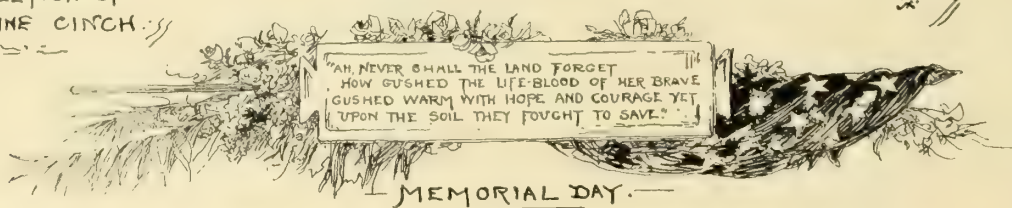 INE CINCH.
"AH, NEVER SHALL THE LAND FORGET
HOW GUSHED THE LIFE-BLOOD OF HER BRAVE
GUSHED WARM WITH HOPE AND COURAGE YET
UPON THE SOIL THEY FOUGHT TO SAVE."
MEMORIAL DAY.